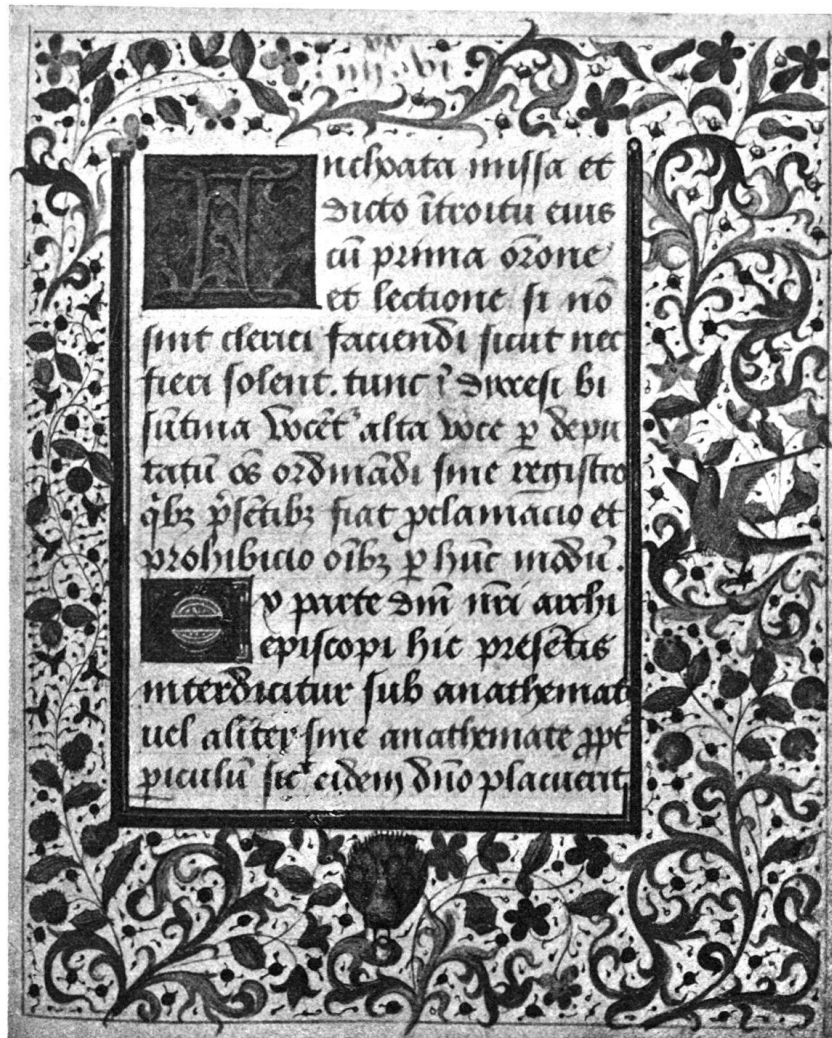 Inchoata missa et
dicto ĩtroitu eius
cũ prima orõne
et lectione si nõ
sint clerici faciendi sicut nec
fieri solent. tunc ĩ diocesi bi
sũtina vocẽt alta voce ꝑ depu
tatũ oẽs ordinãdi sine registro
q̃bꝫ p̃sẽtibꝫ fiat ꝓclamacio et
prohibicio oĩbꝫ ꝑ hũc modũ.
Ex parte dñi nr̃i archi
episcopi hic presẽtis
interdicitur sub anathemat
uel aliter sine anathemate ꝓpt̃
ꝑiculũ sic eidem dño placuerit